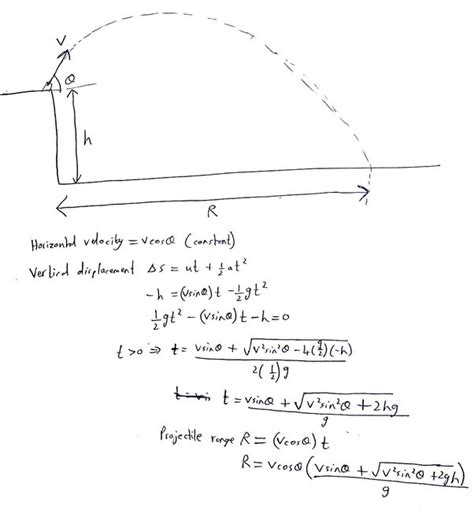 V
θ
h
R
Horizontal velocity = vcosθ (constant)
Vertical displacement Δs = ut + ½at²
-h = (vsinθ)t - ½gt²
½gt² - (vsinθ)t - h = 0
t>0 ⇒ t = vsinθ + √(v²sin²θ - 4(g/2)(-h)) / 2(½)g
t = vsinθ + √(v²sin²θ + 2hg) / g
Projectile range R = (vcosθ)t
R = vcosθ (vsinθ + √(v²sin²θ + 2gh)) / g